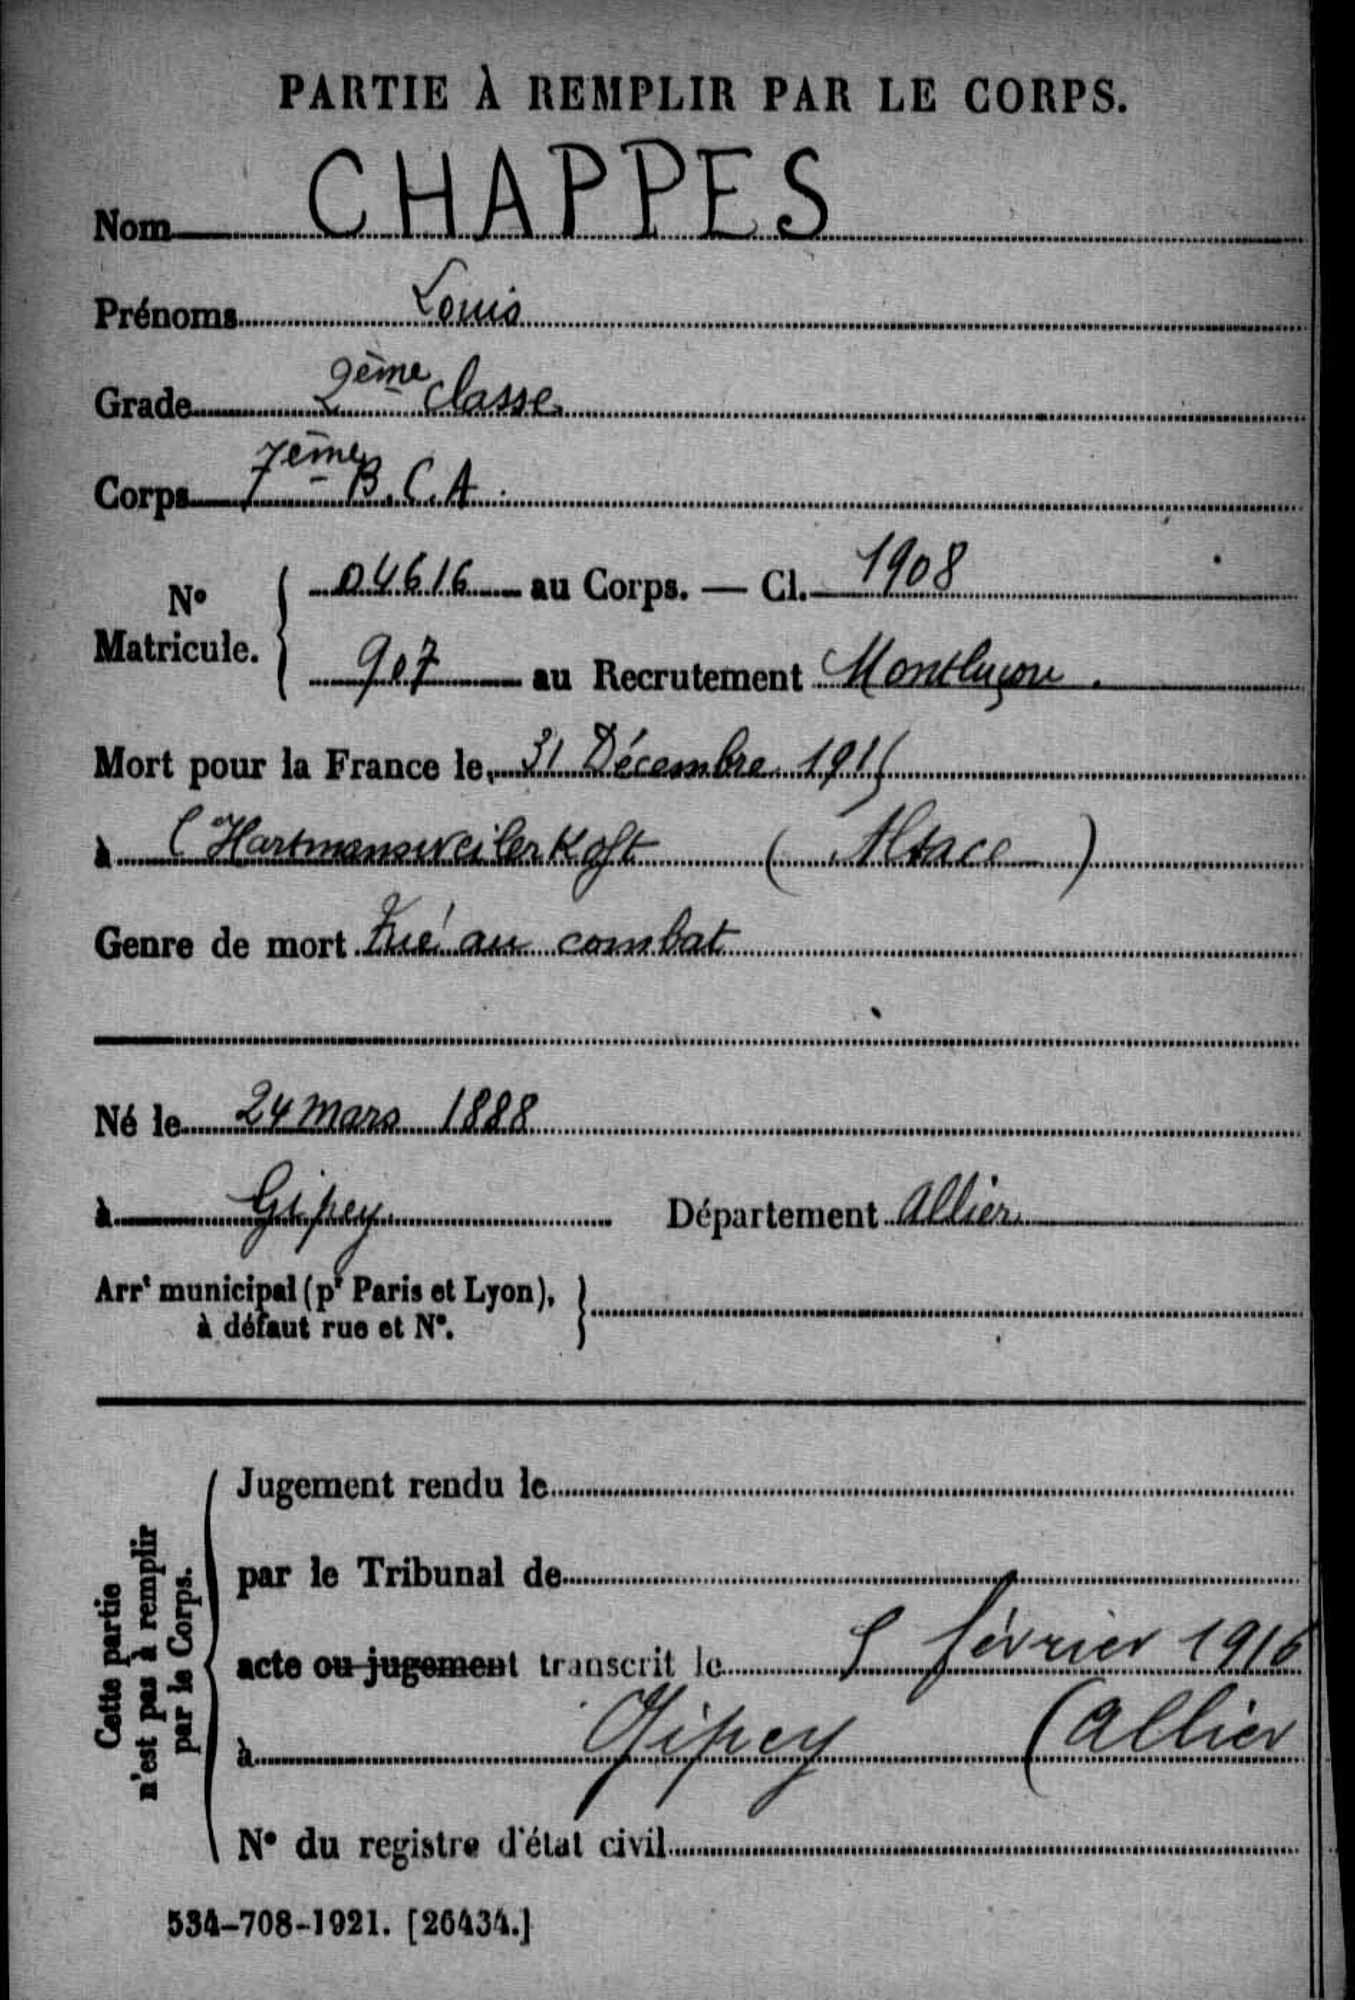 PARTIE À REMPLIR PAR LE CORPS.
Nom CHAPPES
Prénoms Louis
Grade 2ème classe
Corps 7ème B.C.A.
N° Matricule. { 04616 au Corps. — Cl. 1908
907 au Recrutement Montluçon.
Mort pour la France le 31 Décembre 1915
à l'Hartmansweilerkoft (Alsace)
Genre de mort Tué au combat
Né le 24 mars 1888
à Gipcy Département Allier
Arrt municipal (pr Paris et Lyon), }
à défaut rue et N°.
Cette partie
n'est pas à remplir
par le Corps.
Jugement rendu le
par le Tribunal de
acte ou jugement transcrit le 5 février 1916
à Gipcy (Allier
N° du registre d'état civil
534-708-1921. [26434.]